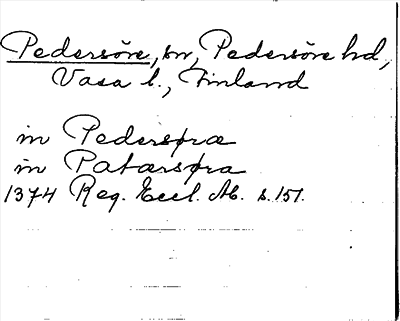 Pedersöre, sn, Pedersöre hd,
Vasa l., Finland
in Pedersøræ
in Patærsøra
1374 Reg. Eccl. Ab. s. 151.